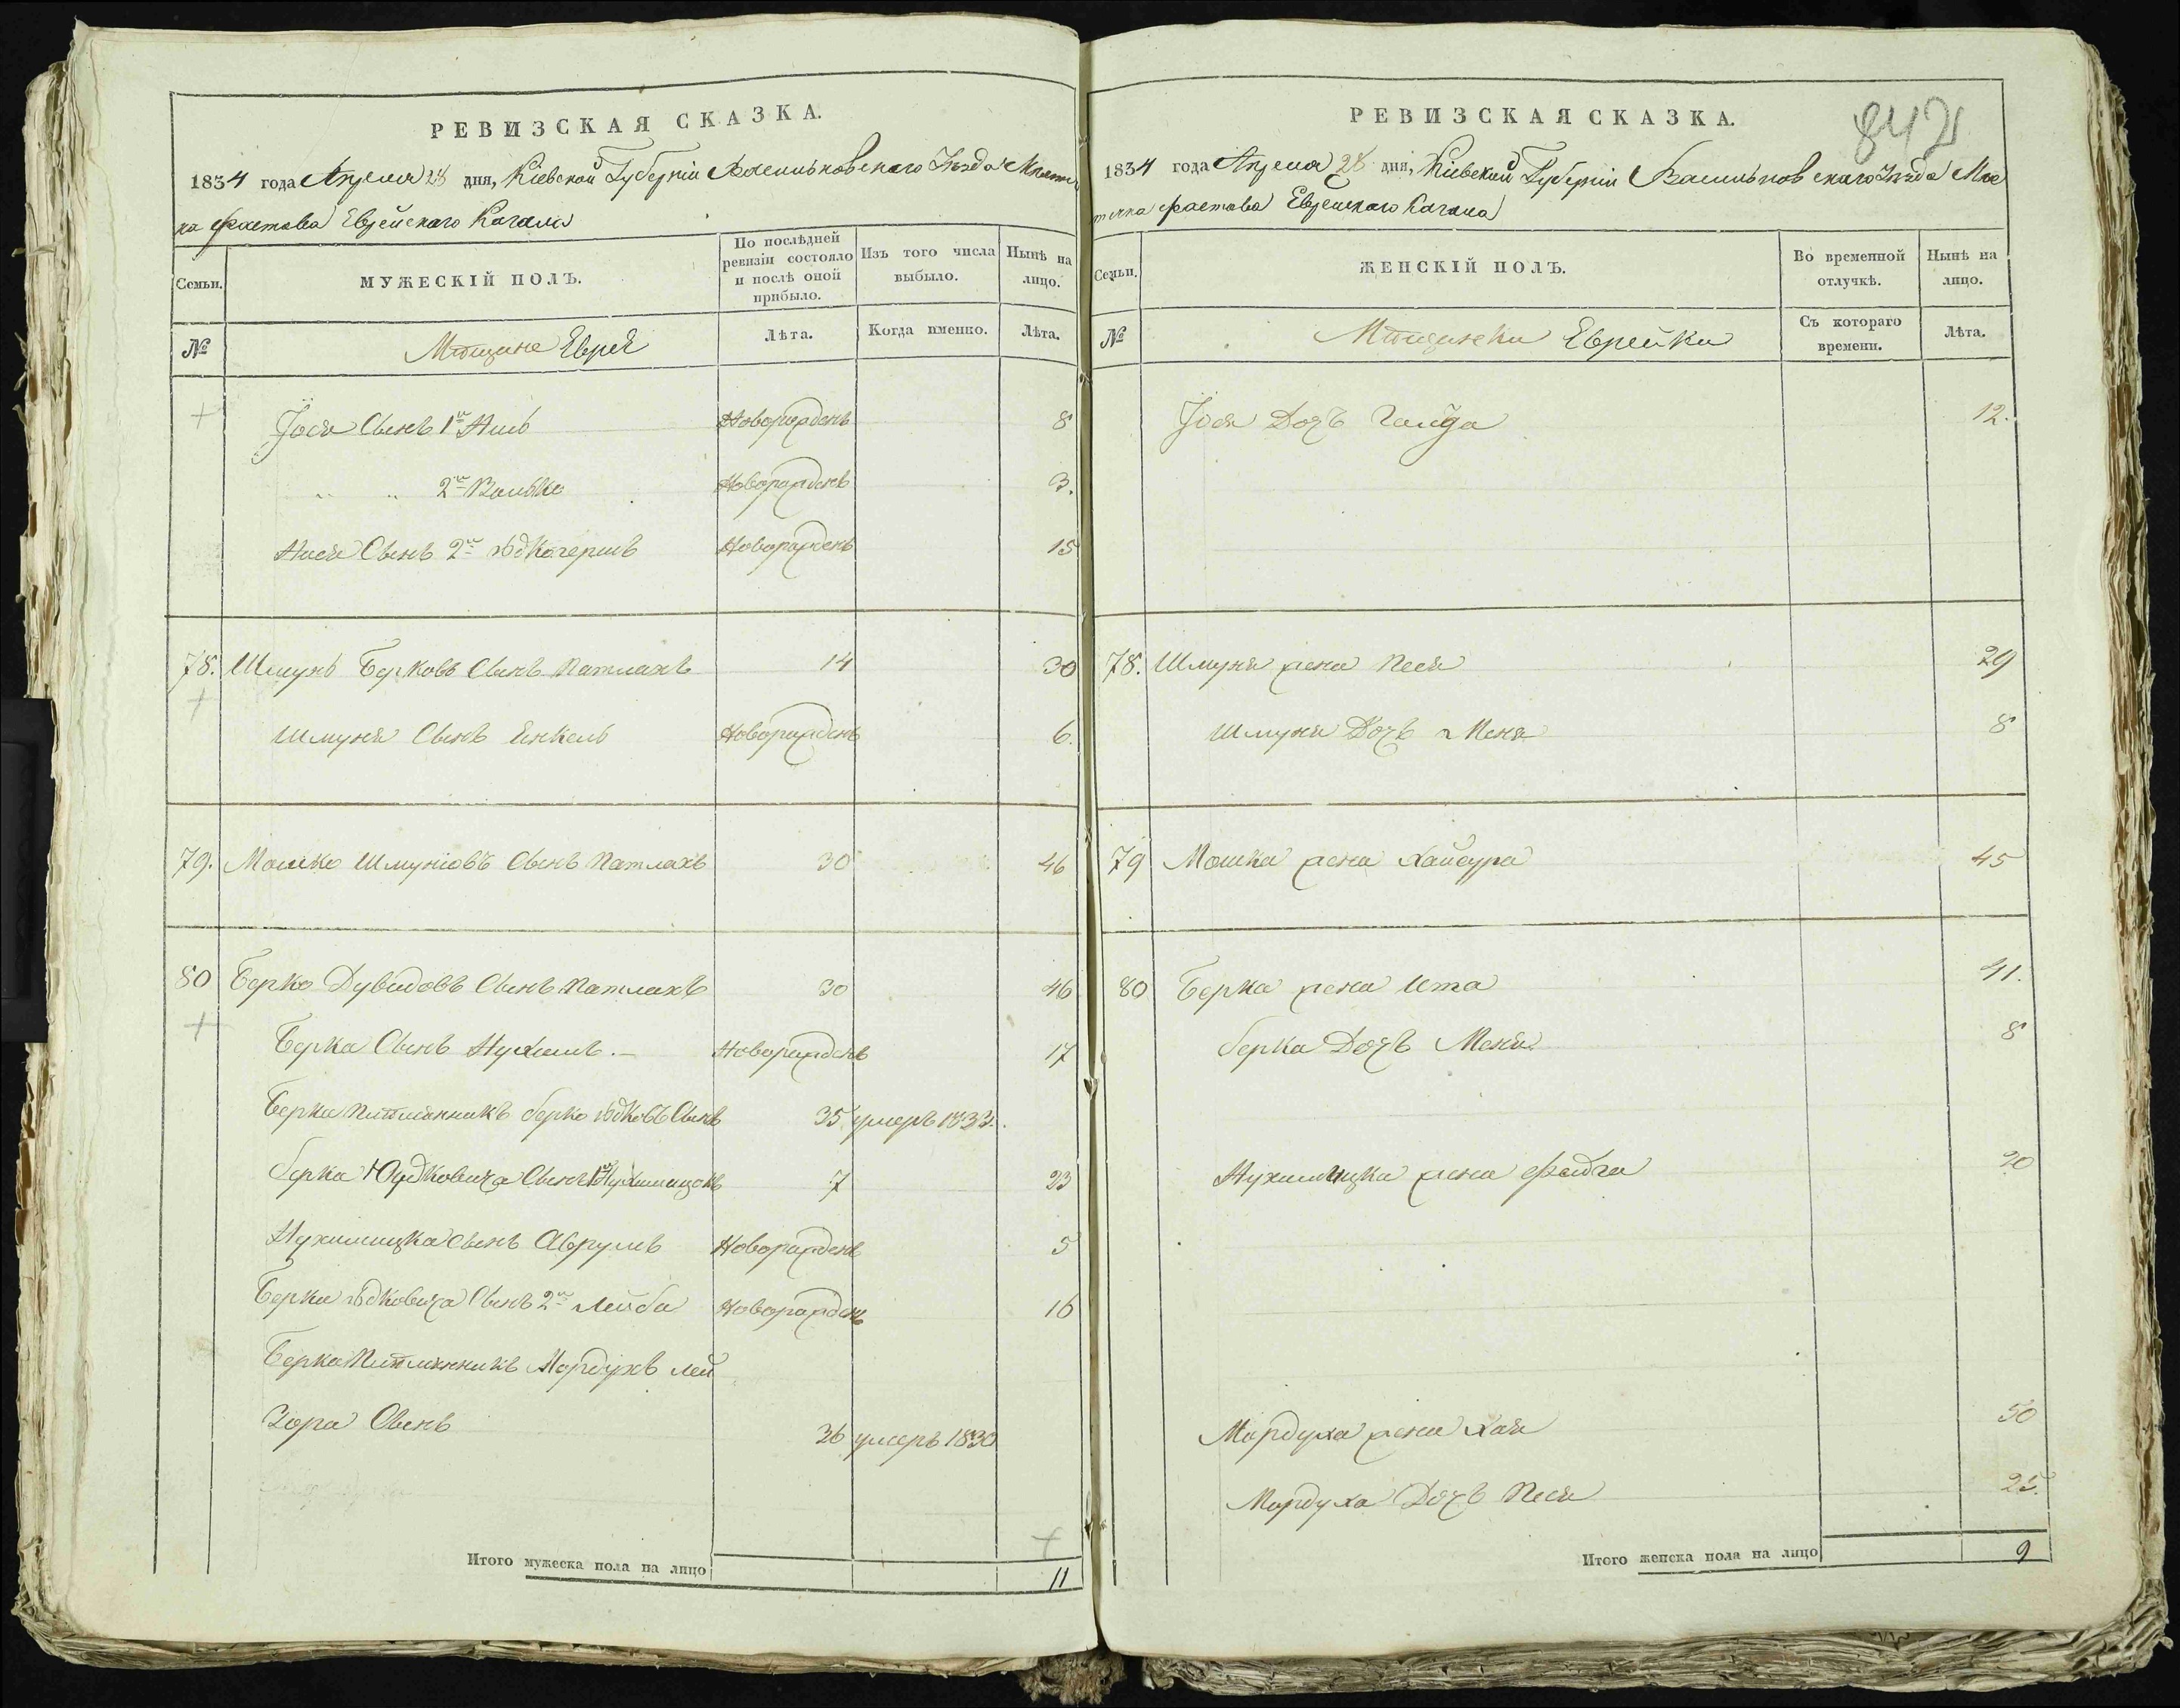 РЕВИЗСКАЯ СКАЗКА.
1834 года Апреля 28 дня, Кіевской Губерніи Васильковскаго Уѣзда Мѣстеч
ка Фастова Еврейскаго Кагала
Семьи. МУЖЕСКІЙ ПОЛЪ. По послѣдней ревизіи состояло и послѣ оной прибыло. Изъ того числа выбыло. Нынѣ на лицо.
№ Мѣщане Евреи Лѣта. Когда именно. Лѣта.
Іося Сынъ 1й Новорожденъ 8
" " 2й Волько Новорожденъ 3.
Сынъ 2й Новорожденъ 15
78. Шмунь Берковъ Сынъ Патлахъ 14 30
Шмуня Сынъ Янкель Новорожденъ 6.
79. Мошко Шмуніовъ Сынъ Патлахъ 30 46
80 Берко Дувидовъ Сынъ Патлахъ 30 46
Берка Сынъ Нухимъ.— Новорожденъ 17
Берка Племянникъ берко Юдковъ Сынъ 35 умеръ 1833.
берка Юдковича Сынъ 1й 7 23
Сынъ Аврумъ Новорожденъ 5
Берка Юдковича Сынъ 2й Лейба Новорожденъ 16
Берка Племянникъ Мордухъ Лей
Зора Сынъ 36 умеръ 1830
Итого мужеска пола на лицо 11
РЕВИЗСКАЯ СКАЗКА. 842
1834 года Апреля 28 дня, Кіевской Губерніи Васильковскаго Уѣзда Мѣс
течка Фастова Еврейскаго Кагала
Семьи. ЖЕНСКІЙ ПОЛЪ. Во временной отлучкѣ. Нынѣ на лицо.
№ Мѣщанки Еврейки Съ котораго времени. Лѣта.
Іося Дочь 12.
78. Шмуня жена Песя 29
Шмуня Дочь 8
79 Мошка жена Хайсура 45
80 Берка жена Ита 41.
берка Дочь Меня 8
жена Фейга 20
Мордуха жена Хая 50
Мордуха Дочь Песя 25.
Итого женска пола на лицо 9